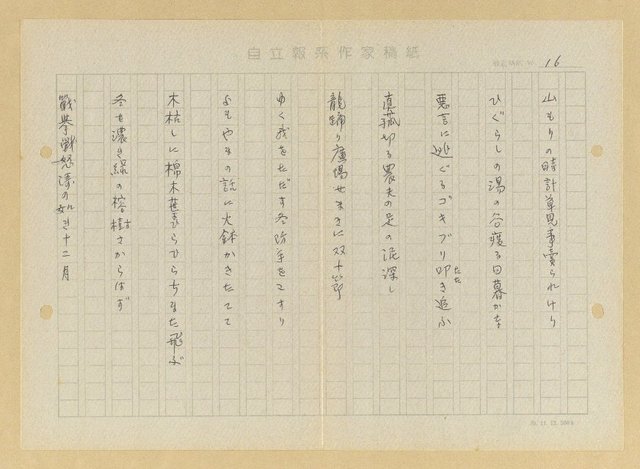 自立報系作家稿紙
16
山もりの時計草見事売られけり
ひぐらしの湯の谷渡る日暮かな
悪言に逃ぐるゴキブリ叩き追ふ
たた
真菰切る農夫の足の泥深し
龍踊り廣場せまきに双十節
ゆく我をただす冬防手をこすり
よもやまの話に火鉢かきたてて
木枯しに棉木葉ひらひらちまた飛ぶ
冬も濃き緑の榕樹さからはず
戦拳戦怒濤の如き十二月